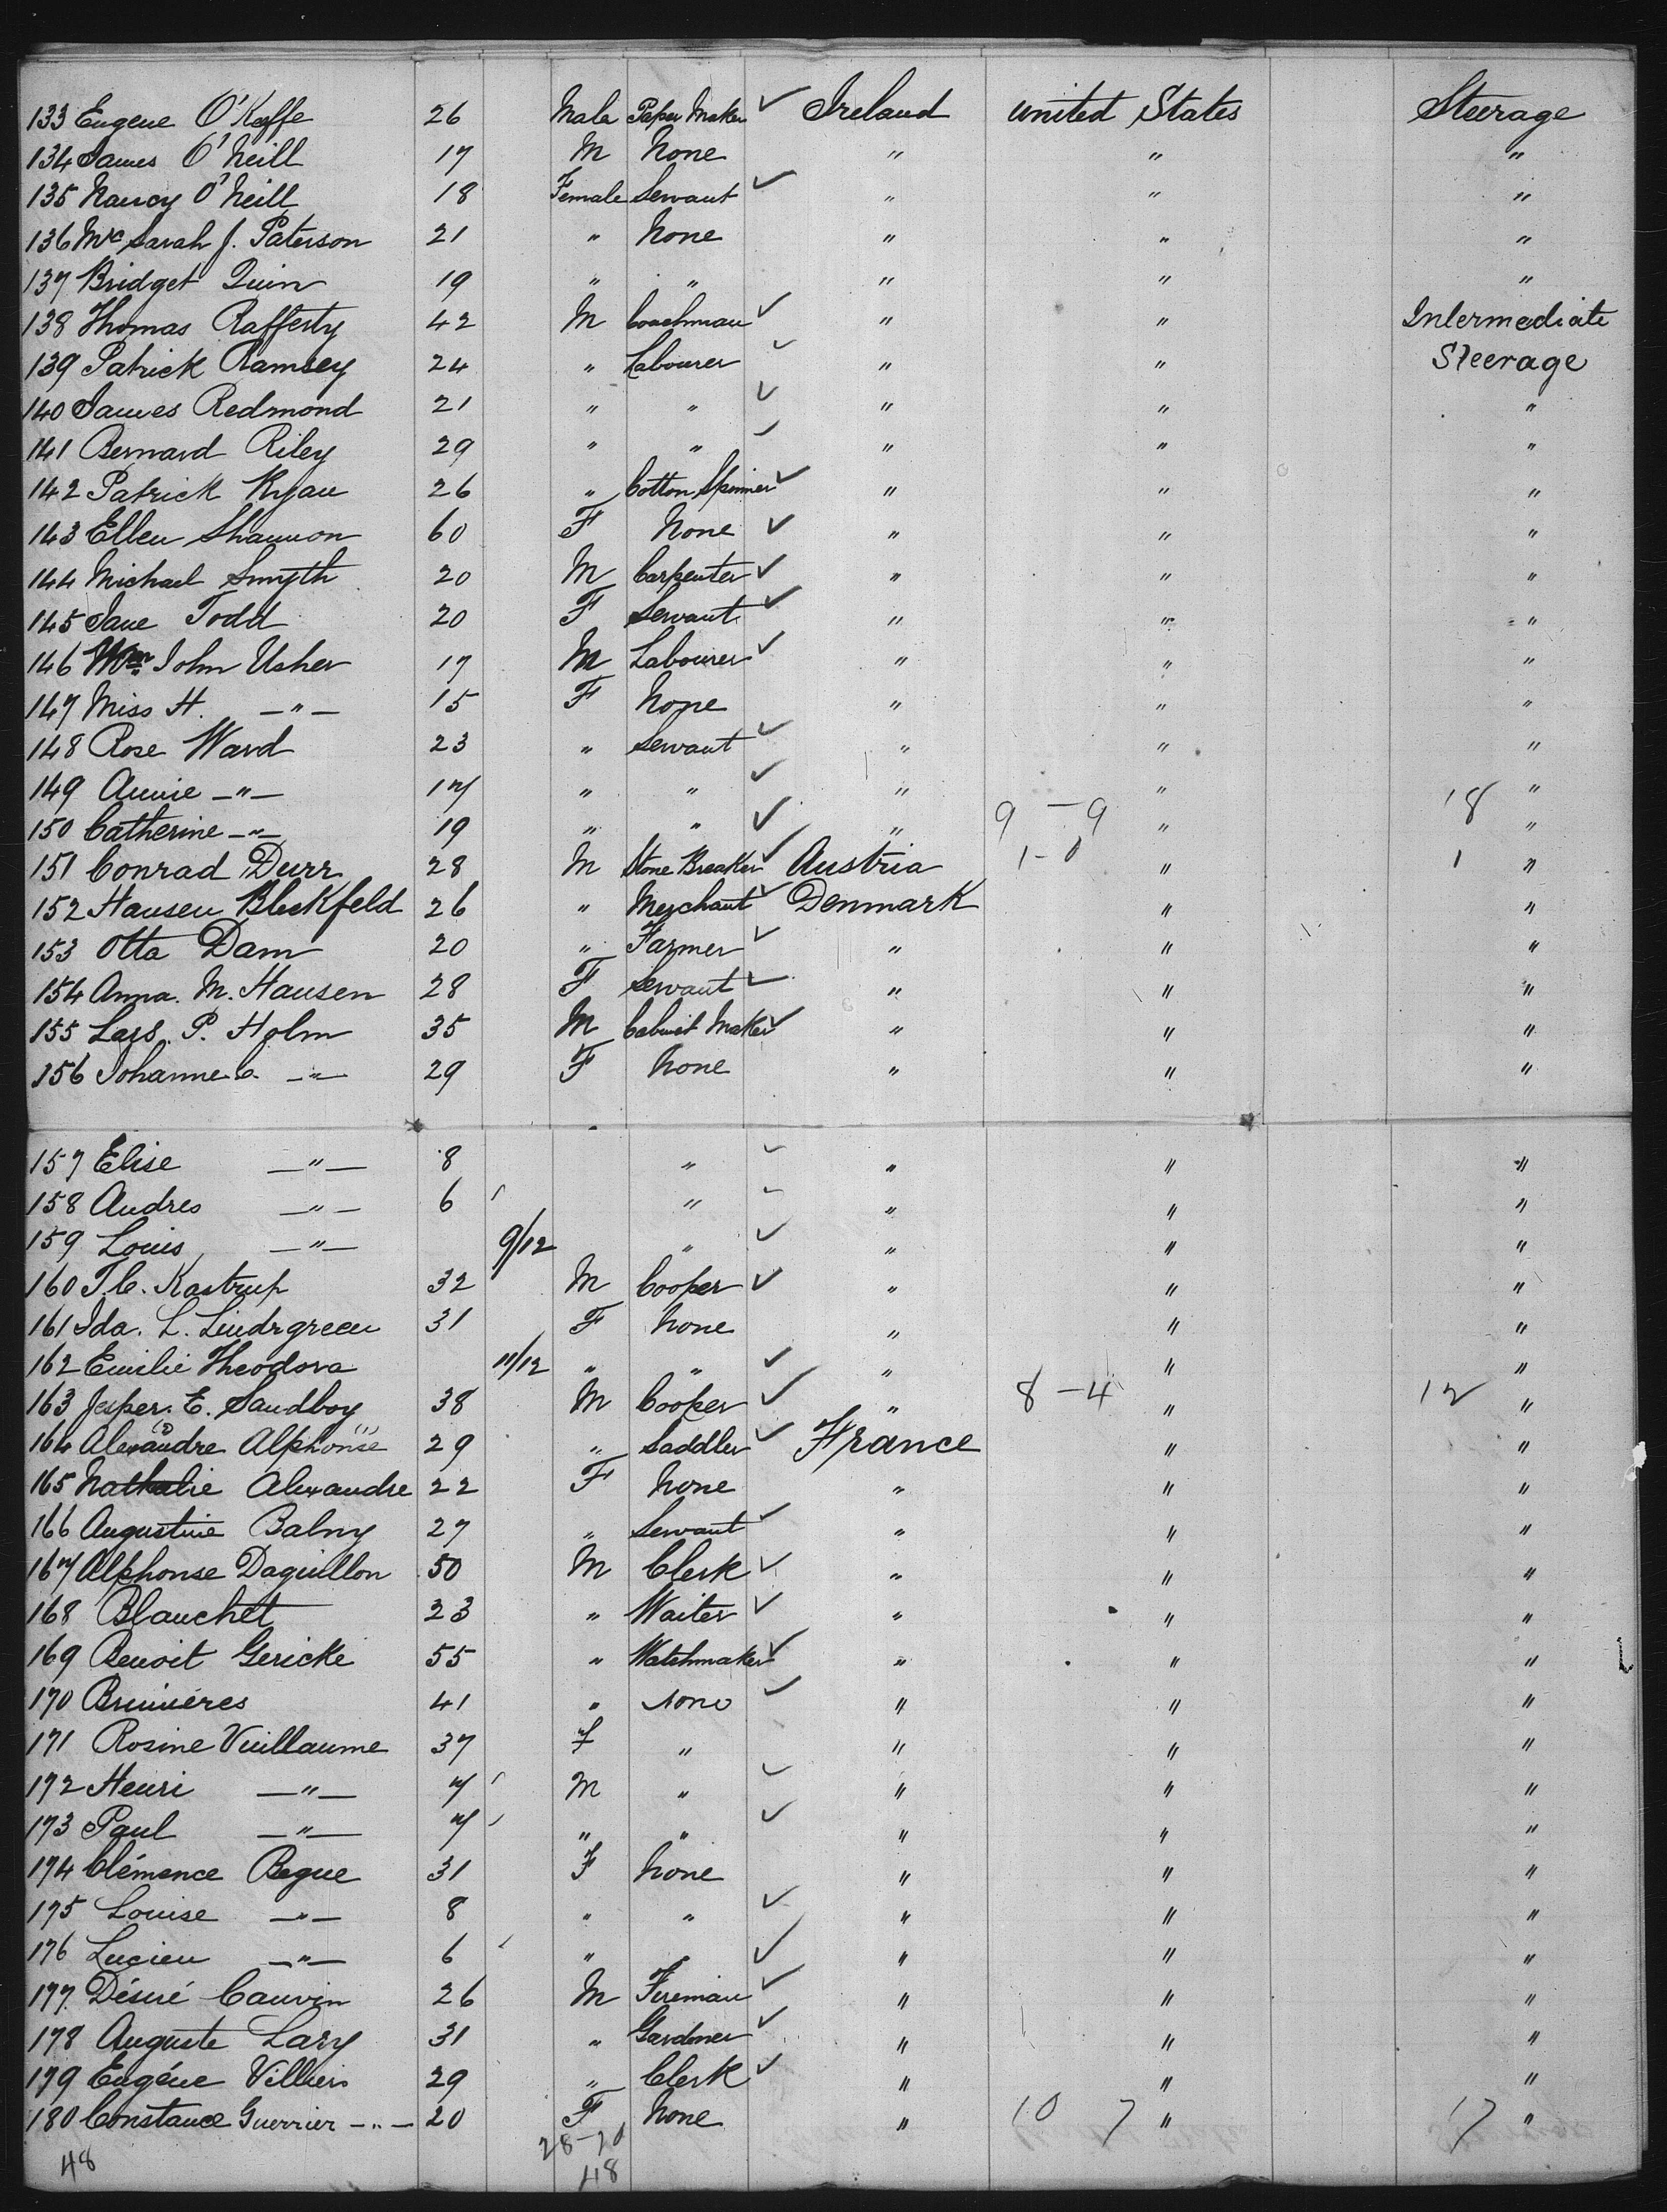 133 Eugene O'Keffe 26 Male Paper Maker ✓ Ireland United States Steerage
134 James O'Neill 17 M None " " "
135 Nancy O'Neill 18 Female Servant ✓ " " "
136 Mc Sarah J. Paterson 21 " None " " "
137 Bridget Quin 19 " " " " "
138 Thomas Rafferty 42 M Coachman ✓ " " Intermediate
139 Patrick Ramsey 24 " Labourer ✓ " " Steerage
140 James Redmond 21 " " ✓ " " "
141 Bernard Riley 29 " " ✓ " " "
142 Patrick Ryan 26 " Cotton Spinner ✓ " " "
143 Ellen Shannon 60 F None ✓ " " "
144 Michael Smyth 20 M Carpenter ✓ " " "
145 Jane Todd 20 F Servant ✓ " " "
146 Wm John Usher 17 M Labourer ✓ " " "
147 Miss H. —"— 15 F None " " "
148 Rose Ward 23 " Servant ✓ " " "
149 Annie —"— 17 " " ✓ " " "
150 Catherine —"— 19 " " ✓ " 9 – 9 " 18 "
151 Conrad Durr 28 M Stone Breaker ✓ Austria 1–0 " 1 "
152 Hansen Bleckfeld 26 " Merchant ✓ Denmark " "
153 Otta Dam 20 " Farmer ✓ " " "
154 Anna. M. Hansen 28 F Servant ✓ " " "
155 Lars. P. Holm 35 M Cabinet Maker ✓ " " "
156 Johanne C. —"— 29 F None " " "
157 Elise —"— 8 " ✓ " " "
158 Andres —"— 6 " ✓ " " "
159 Louis —"— 9/12 " ✓ " " "
160 T. C. Kastrup 32 M Cooper ✓ " " "
161 Ida. L. Lindrgreen 31 F None " " "
162 Emilie Theodora 11/12 " " ✓ " " "
163 Jesper. E. Sandboy 38 M Cooper ✓ " 8 – 4 " 12 "
164 Alexandre Alphonse 29 " Saddler ✓ France " "
165 Nathalie Alexandre 22 F None " " "
166 Augustine Balny 27 " Servant ✓ " " "
167 Alphonse Daguillon 50 M Clerk ✓ " " "
168 Blanchet 23 " Waiter ✓ " " "
169 Benoit Gericke 55 " Watchmaker ✓ " " "
170 Brunières 41 " None ✓ " " "
171 Rosine Vuillaume 37 F " " " "
172 Henri —"— 7 M " ✓ " " "
173 Paul —"— 7 " " ✓ " " "
174 Clémence Begue 31 F None " " "
175 Louise —"— 8 " " ✓ " " "
176 Lucien —"— 6 " " ✓ " " "
177. Désiré Cauvin 26 M Fireman ✓ " " "
178 Auguste Lary 31 " Gardener ✓ " " "
179 Eugéne Villiers 29 " Clerk ✓ " " "
180 Constance Guerrier —"— 20 F None " 10 7 " 17 "
28–20
48 48